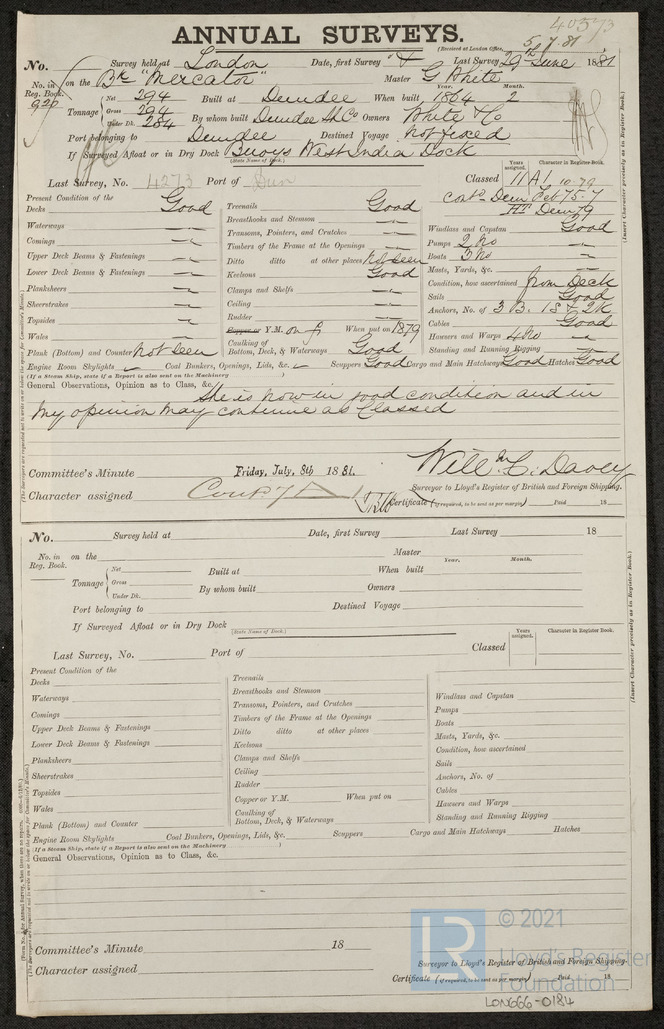 40573
ANNUAL SURVEYS.
(Received at London Office, 5.7.81
No. Survey held at London Date, first Survey & Last Survey 29th June 1881
No. in Reg. Book. 920 on the Bk "Mercator" Master G White
Tonnage Net 294 Built at Dundee When built Year. 1864 Month. 2
Gross 294 By whom built Dundee Sh Co Owners White & Co
Under Dk. 284
Port belonging to Dundee Destined Voyage not fixed
If Surveyed Afloat or in Dry Dock Buoys West India Dock
(State Name of Dock.)
Last Survey, No. 4273 Port of Dun Classed Years assigned. 11 A1 Character in Register Book. 10.79
Cont Dun Feb 75-7
HT Dun 79
(Insert Character precisely as in Register Book.)
Present Condition of the
Decks Good
Waterways "
Comings "
Upper Deck Beams & Fastenings "
Lower Deck Beams & Fastenings "
Planksheers "
Sheerstrakes "
Topsides "
Wales "
Plank (Bottom) and Counter Not Seen
Treenails Good
Breasthooks and Stemson "
Transoms, Pointers, and Crutches "
Timbers of the Frame at the Openings "
Ditto ditto at other places Not seen
Keelsons Good
Clamps and Shelfs "
Ceiling "
Rudder "
Copper or Y.M. on f When put on 1879
Caulking of
Bottom, Deck, & Waterways Good
Windlass and Capstan Good
Pumps 2 No "
Boats 3 No "
Masts, Yards, &c. "
Condition, how ascertained from Deck
Sails Good
Anchors, No. of 3 B. 1 S & 2 K
Cables Good
Hawsers and Warps 4 No "
Standing and Running Rigging "
Engine Room Skylights Coal Bunkers, Openings, Lids, &c. Scuppers Good Cargo and Main Hatchways Good Hatches Good
(If a Steam Ship, state if a Report is also sent on the Machinery
General Observations, Opinion as to Class, &c. She is now in good condition and in
my opinion may continue as Classed
Committee's Minute Friday, July, 8th 1881. Will m C. Davey
Character assigned Surveyor to Lloyd's Register of British and Foreign Shipping.
Certificate (if required, to be sent as per margin) Paid 18
No. Survey held at Date, first Survey Last Survey 18
No. in Reg. Book. on the Master
Tonnage Net Built at When built Year. Month.
Gross By whom built Owners
Under Dk.
Port belonging to Destined Voyage
If Surveyed Afloat or in Dry Dock
(State Name of Dock.)
Last Survey, No. Port of Classed Years assigned. Character in Register Book.
(Insert Character precisely as in Register Book.)
Present Condition of the
Decks
Waterways
Comings
Upper Deck Beams & Fastenings
Lower Deck Beams & Fastenings
Planksheers
Sheerstrakes
Topsides
Wales
Plank (Bottom) and Counter
Treenails
Breasthooks and Stemson
Transoms, Pointers, and Crutches
Timbers of the Frame at the Openings
Ditto ditto at other places
Keelsons
Clamps and Shelfs
Ceiling
Rudder
Copper or Y.M. When put on
Caulking of
Bottom, Deck, & Waterways
Windlass and Capstan
Pumps
Boats
Masts, Yards, &c.
Condition, how ascertained
Sails
Anchors, No. of
Cables
Hawsers and Warps
Standing and Running Rigging
Engine Room Skylights Coal Bunkers, Openings, Lids, &c. Scuppers Cargo and Main Hatchways Hatches
(If a Steam Ship, state if a Report is also sent on the Machinery
General Observations, Opinion as to Class, &c.
Committee's Minute 18
Character assigned Surveyor to Lloyd's Register of British and Foreign Shipping.
Certificate (if required, to be sent as per margin) Paid 18
LR © 2021
Lloyd's Register
Foundation
LON666-0184